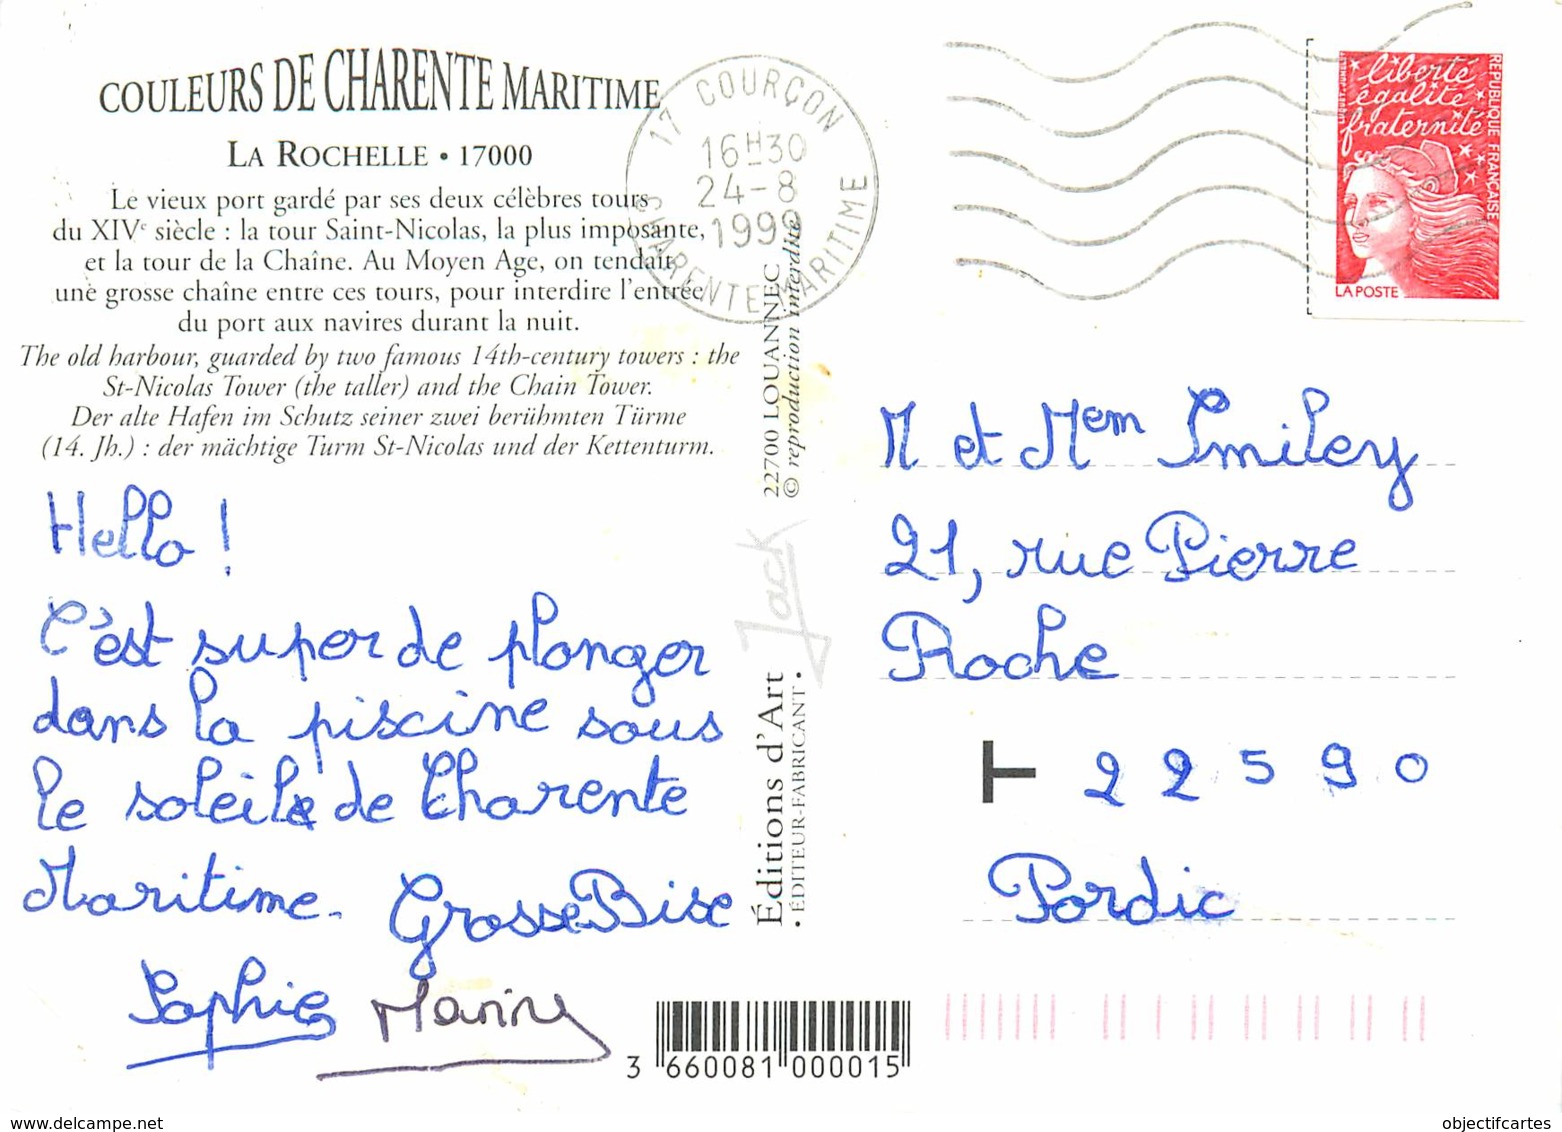 COULEURS DE CHARENTE MARITIME
LA ROCHELLE • 17000
Le vieux port gardé par ses deux célèbres tours
du XIVe siècle : la tour Saint-Nicolas, la plus imposante,
et la tour de la Chaîne. Au Moyen Age, on tendait
une grosse chaîne entre ces tours, pour interdire l'entrée
du port aux navires durant la nuit.
The old harbour, guarded by two famous 14th-century towers : the
St-Nicolas Tower (the taller) and the Chain Tower.
Der alte Hafen im Schutz seiner zwei berühmten Türme
(14. Jh.) : der mächtige Turm St-Nicolas und der Kettenturm.
Hello !
C'est super de plonger
dans la piscine sous
le soleil de Charente
Maritime. Grosse Bise
Sophie Marine
17 COURÇON
16H30
24-8
1999
CHARENTE MARITIME
Éditions d'Art
• ÉDITEUR-FABRICANT •
Jack
22700 LOUANNEC
© reproduction interdite
liberté
égalité
fraternité
RÉPUBLIQUE FRANÇAISE
LA POSTE
M et Mem Smiley
21, rue Pierre
Roche
T 22590
Pordic
3 660081 000015
www.delcampe.net
objectifcartes